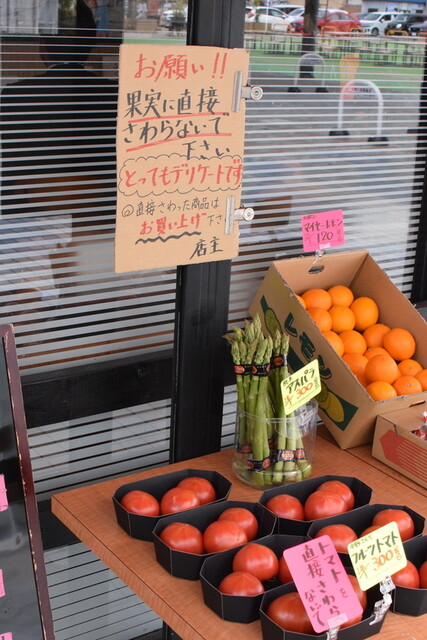 お願い!!
果実に直接
さわらないで
下さい
とってもデリケートです
◎直接さわった商品は
お買い上げ下さい
店主
マイヤーレモン
120
アスパラ
¥300
フルーツトマト
¥300
トマトを
直接さわら
ないで